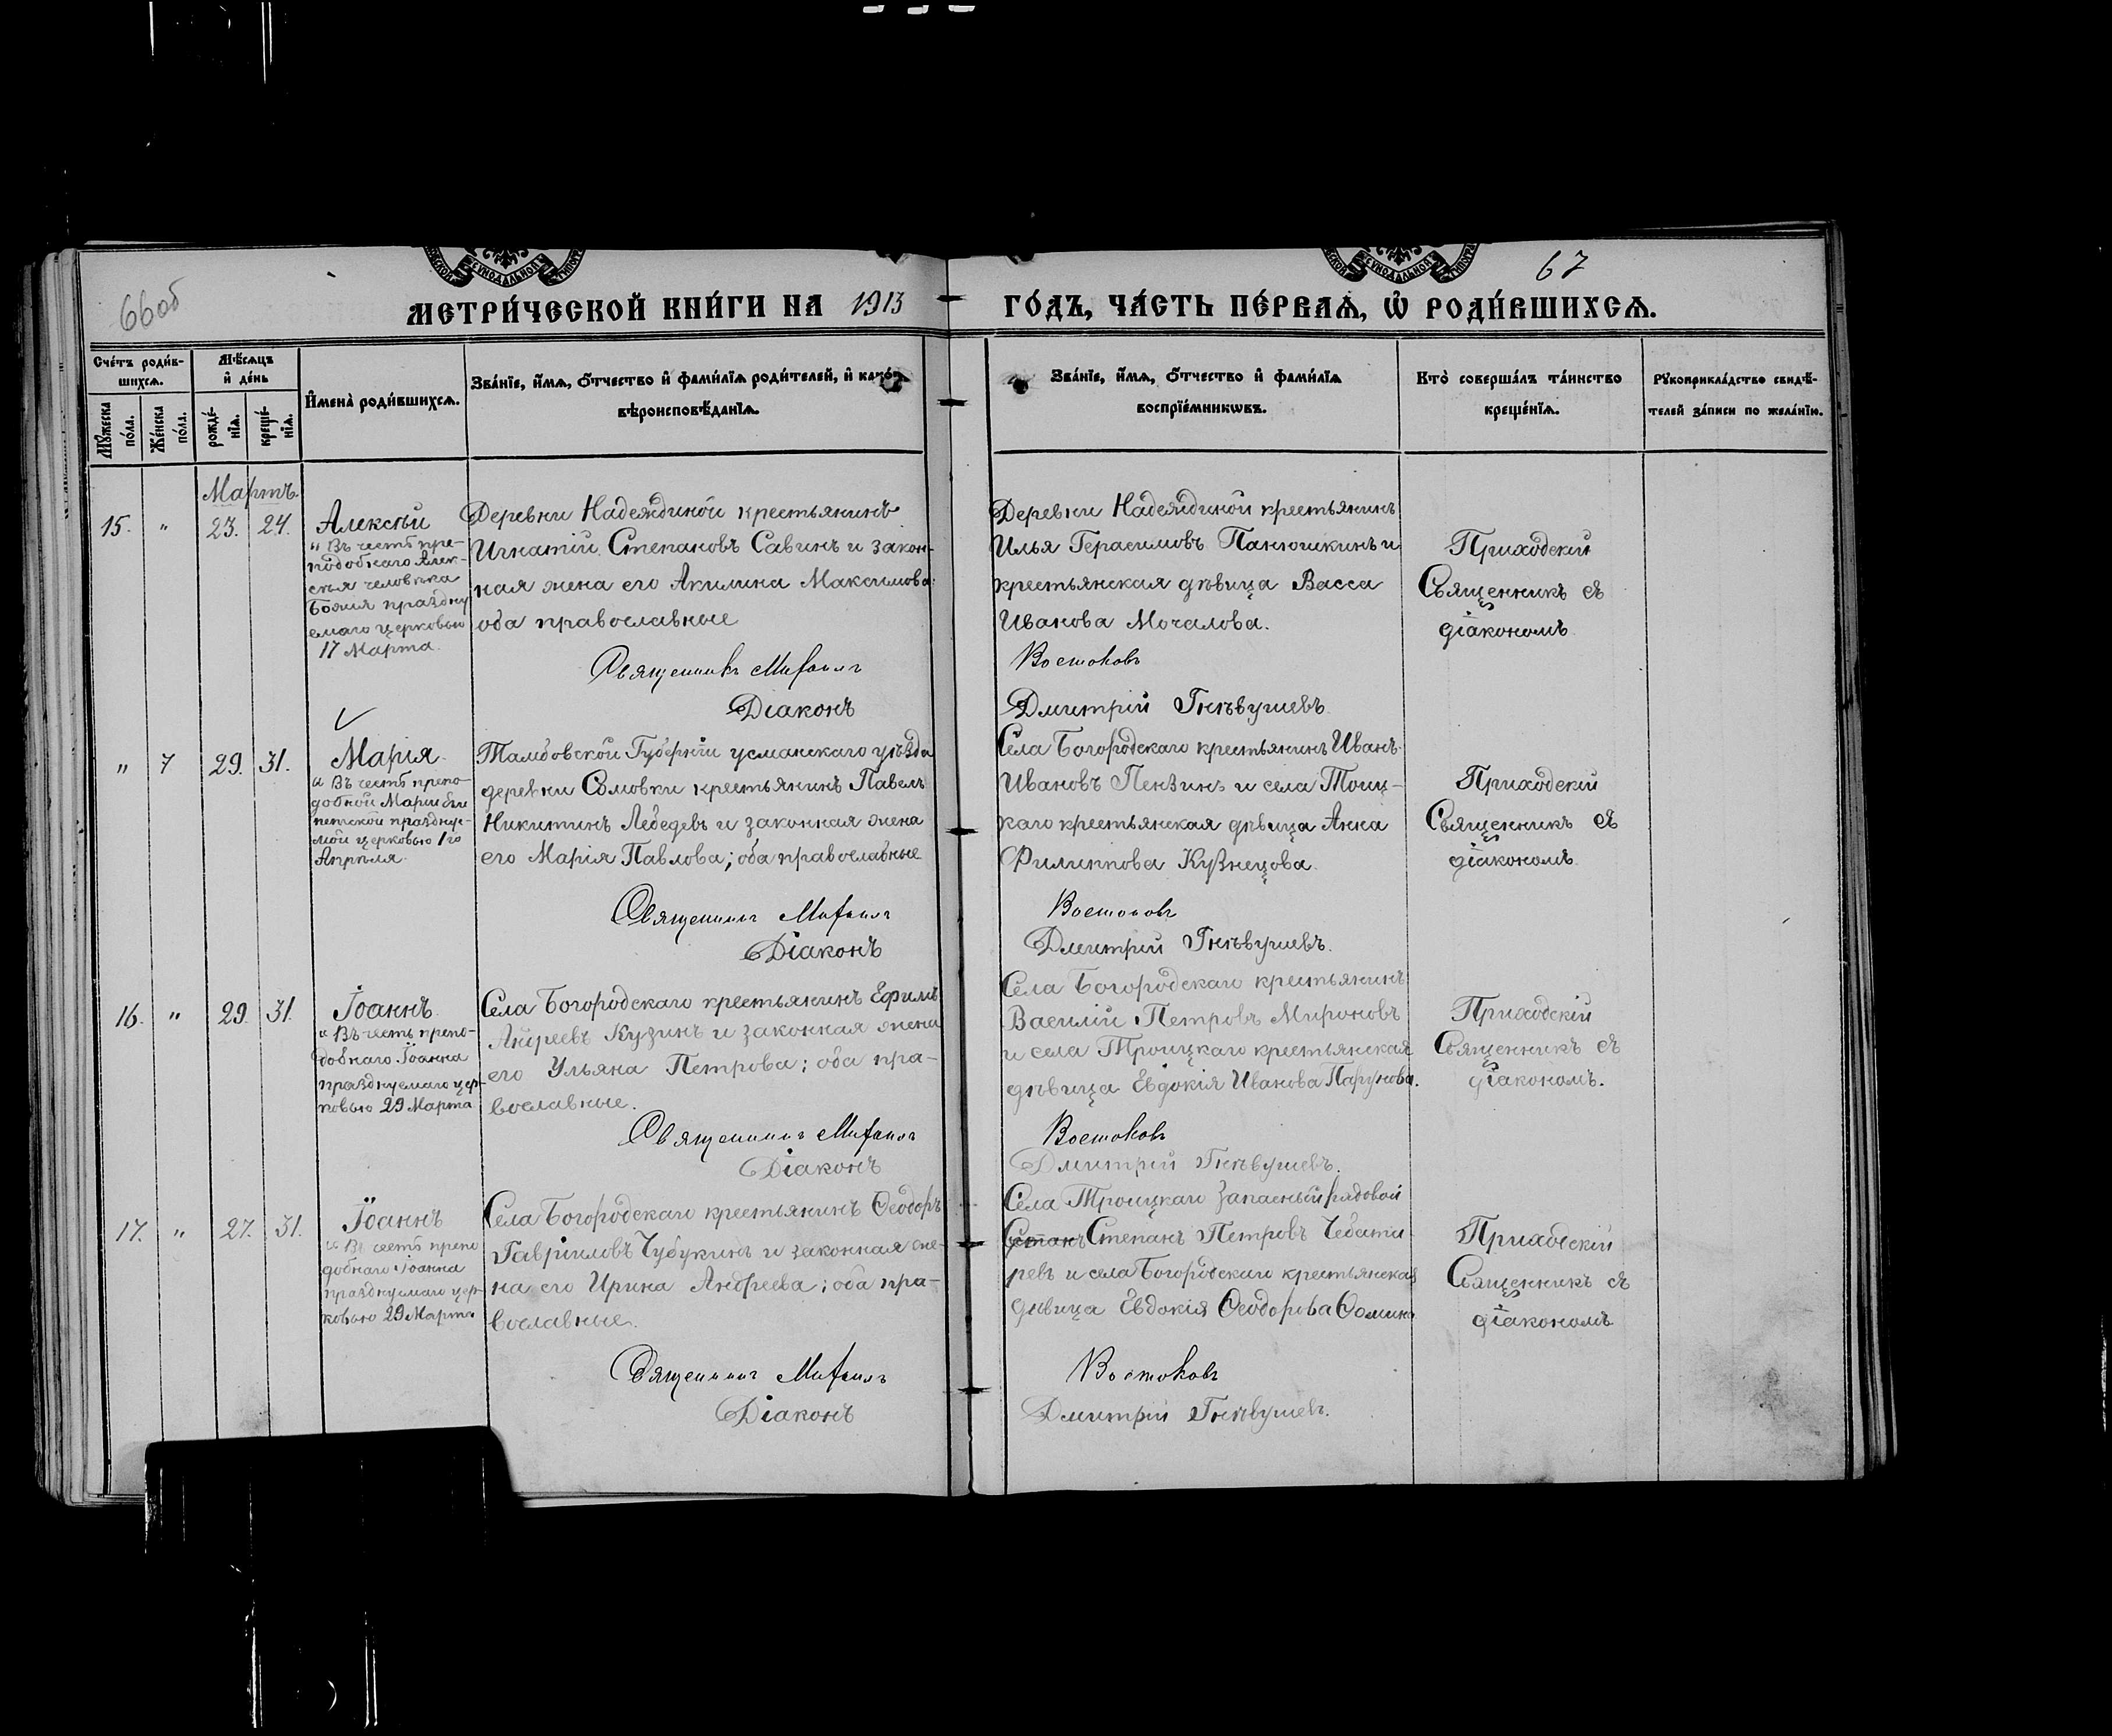 66об
67
МЕТРИ́ЧЕСКОЙ КНИ́ГИ НА 1913 ГО́ДЪ, ЧА́СТЬ ПЕ́РВАѦ, Ѡ҆ РОДИ́ВШИХСѦ.
Сче́тъ роди́в-
шихсѧ.
Мѣ́сѧцъ
и҆ де́нь
Мꙋ́жеска
по́ла.
Же́нска
по́ла.
рожде́-
нїѧ.
креще́-
нїѧ.
И҆мена̀ роди́вшихсѧ.
Зва́нїе, и҆́мѧ, ѻ҆́тчество и҆ фами́лїѧ роди́телей, и҆ како́гѡ
вѣроисповѣ́данїѧ.
Зва́нїе, и҆́мѧ, ѻ҆́тчество и҆ фами́лїѧ
воспрїе́мникѡвъ.
Кто̀ соверша́лъ та́инство
креще́нїѧ.
Рꙋкоприкла́дство свидѣ́-
телей за́писи по жела́нїю.
Мартъ.
15. " 23. 24.
Алексѣй
"Въ честь пре-
подобнаго Алек-
сѣя человѣка
Божія праздну
емаго церковью
17 Марта.
Деревни Надеждиной крестьянинъ
Игнатій Степановъ Савинъ и закон-
ная жена его Акилина Максимова:
оба православные
Священникъ Михаилъ
Діаконъ
Деревни Надеждиной крестьянинъ
Илья Герасимовъ Панюшкинъ и
крестьянская дѣвица Васса
Иванова Мочалова.
Востоковъ
Дмитрій Гнѣвушевъ
Приходскій
Священникъ съ
діакономъ
" 7 29. 31.
Марія.
"Въ честь препо-
добной Маріи Еги
петской праздну-
мой церковью 1го
Апрѣля.
Тамбовской Губерніи усманскаго уѣзда
деревни Сомовки крестьянинъ Павелъ
Никитинъ Лебедевъ и законная жена
его Марія Павлова; оба православные
Священникъ Михаилъ
Діаконъ
Села Богородскаго крестьянинъ Иванъ
Ивановъ Пензинъ и села Тоиц-
каго крестьянская дѣвица Анна
Филиппова Кузнецова
Востоковъ
Дмитрій Гнѣвушевъ.
Приходскій
Священникъ съ
діакономъ.
16. " 29. 31.
Іоаннъ.
"Въ честь препо-
добнаго Іоанна
празднуемаго цер-
ковью 29 Марта
Села Богородскаго крестьянинъ Ефимъ
Андреевъ Кузинъ и законная жена
его Ульяна Петрова; оба пра-
вославные.
Священникъ Михаилъ
Діаконъ
Села Богородскаго крестьянинъ
Василій Петровъ Мироновъ
и села Троицкаго крестьянская
дѣвица Евдокія Иванова Парунова.
Востоковъ
Дмитрій Гнѣвушевъ.
Приходскій
Священникъ съ
діакономъ.
17. " 27. 31.
Іоаннъ
"Въ честь препо
добнаго Іоанна
празднуемаго цер-
ковью 29 Марта
Села Богородскаго крестьянинъ Ѳеодоръ
Гавріиловъ Чубукинъ и законная же-
на его Ирина Андреева; оба пра-
вославные.
Священникъ Михаилъ
Діаконъ
Села Троицкаго Запасный рядовой
Степанъ Петровъ Чебота
ревъ и села Богородскаго крестьянская
дѣвица Евдокія Ѳеодорова Ѳомина
Востоковъ
Дмитрій Гнѣвушевъ.
Приходскій
Священникъ съ
діакономъ